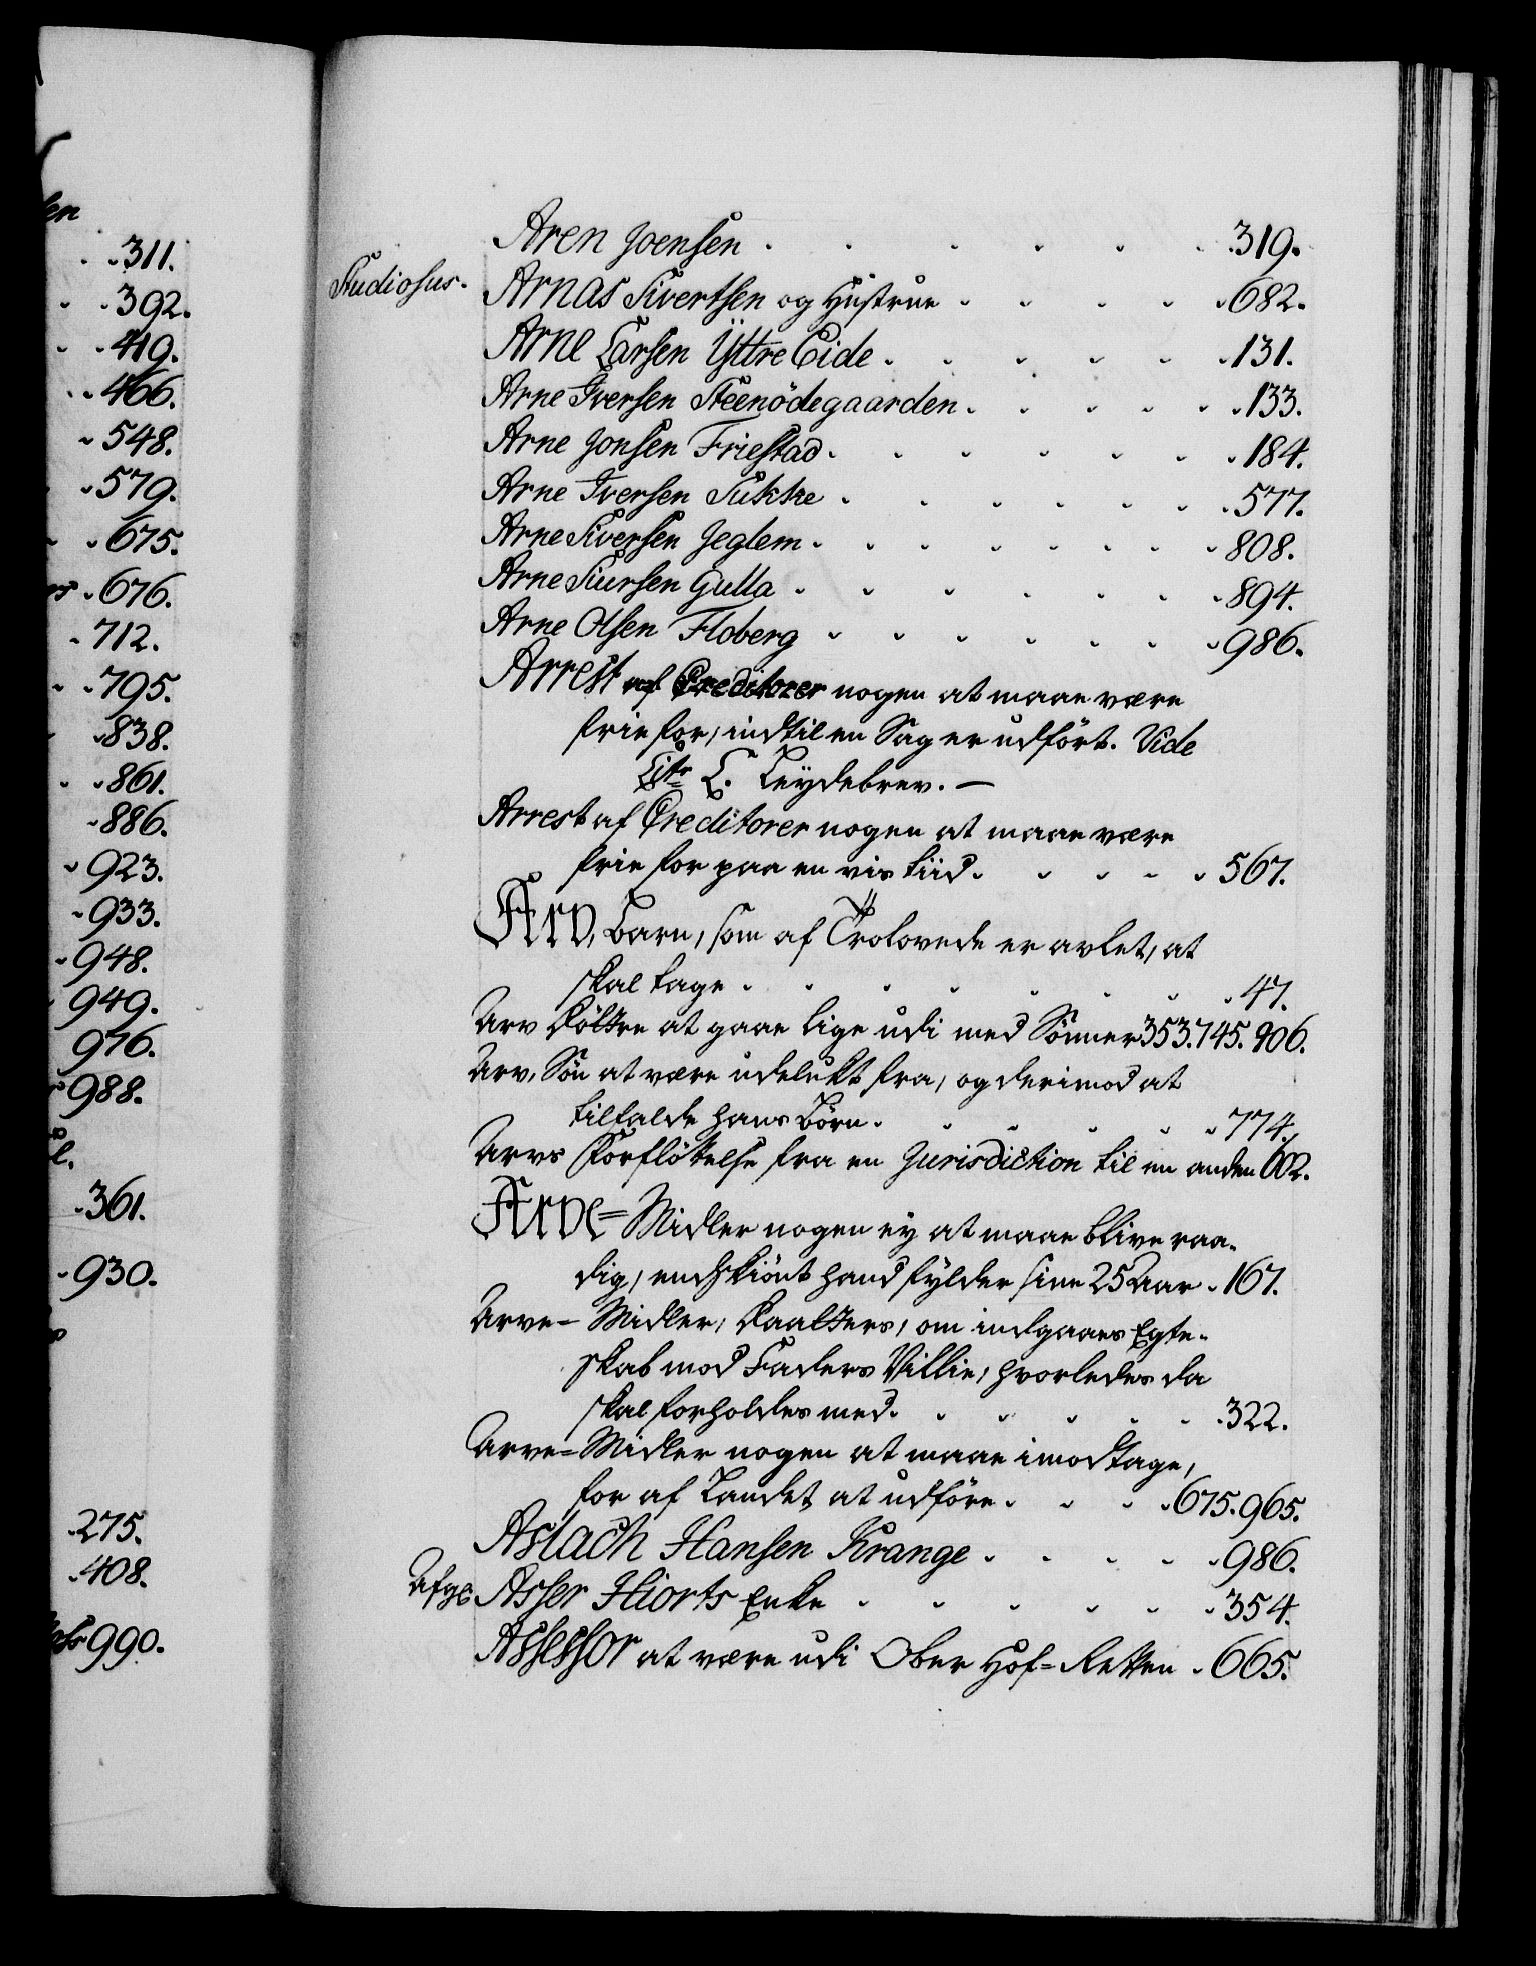 en
311.
392.
419.
466.
548.
579.
675.
676.
712.
795.
838.
861.
886.
923.
933.
948.
949.
976.
988.
361.
930.
275.
408.
990.
Aren Joensen . . . . . . 319.
Studiosus. Arnas Sivertsen og Hustrue . . . . . 682.
Arne Larsen Ýttre Eide . . . . . . 131.
Arne Iversen Steenödegaarden . . . . . . 133.
Arne Jonsen Friestad . . . . . . . 184.
Arne Iversen Sukke . . . . . . . 577.
Arne Siversen Jeglem . . . . . . . . 808.
Arne Siursen Gulla . . . . . . . 894.
Arne Olsen Floberg . . . . . . . 986.
Arrest af Creditorer nogen at maae være
frie for, indtil en Sag er udfört. Vide
Litr L. Leÿdebrev. —
Arrest af Creditorer nogen at maae være
frie for paa en vis tiid . . . . . 567.
Arv, Barn, som af Trolovede er avlet, at
skal tage . . . . . . . . 47.
Arv Döttre at gaae lige udi med Sönner 353. 745. 906.
Arv, Sön at være udelukt fra, og derimod at
tilfalde hans Börn . . . . . . . 774.
Arvs Forflÿttelse fra en Jurisdiction til en anden 602.
Arve=Midler nogen ey at maae blive raa-
dig, endskiönt hand fylder sine 25 Aar . 167.
Arve= Midler, Daatters, om indgaaes Egte-
skab mod Faders Villie, hvorledes da
skal forholdes med . . . . . . 322.
Arve=Midler nogen at maae imodtage,
for af Landet at udföre . . . . 675. 965.
Aslach Hansen Krange . . . . . 986.
Afgs Asser Hiorts Enke . . . . . . 354.
Assessor at være udi Ober Hof=Retten . 665.